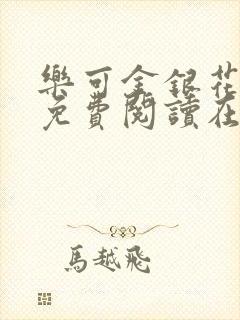 樂可金銀花
免費閱讀在
馬越飛